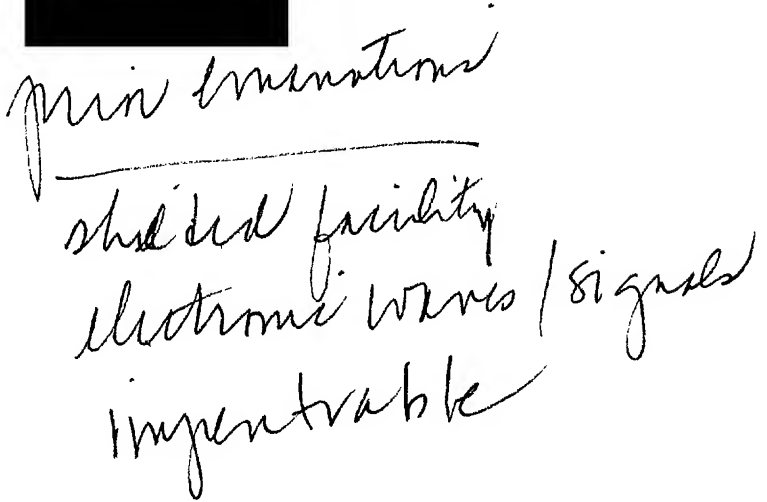 prin emanations
shielded facility
electronic waves / signals
impentrable